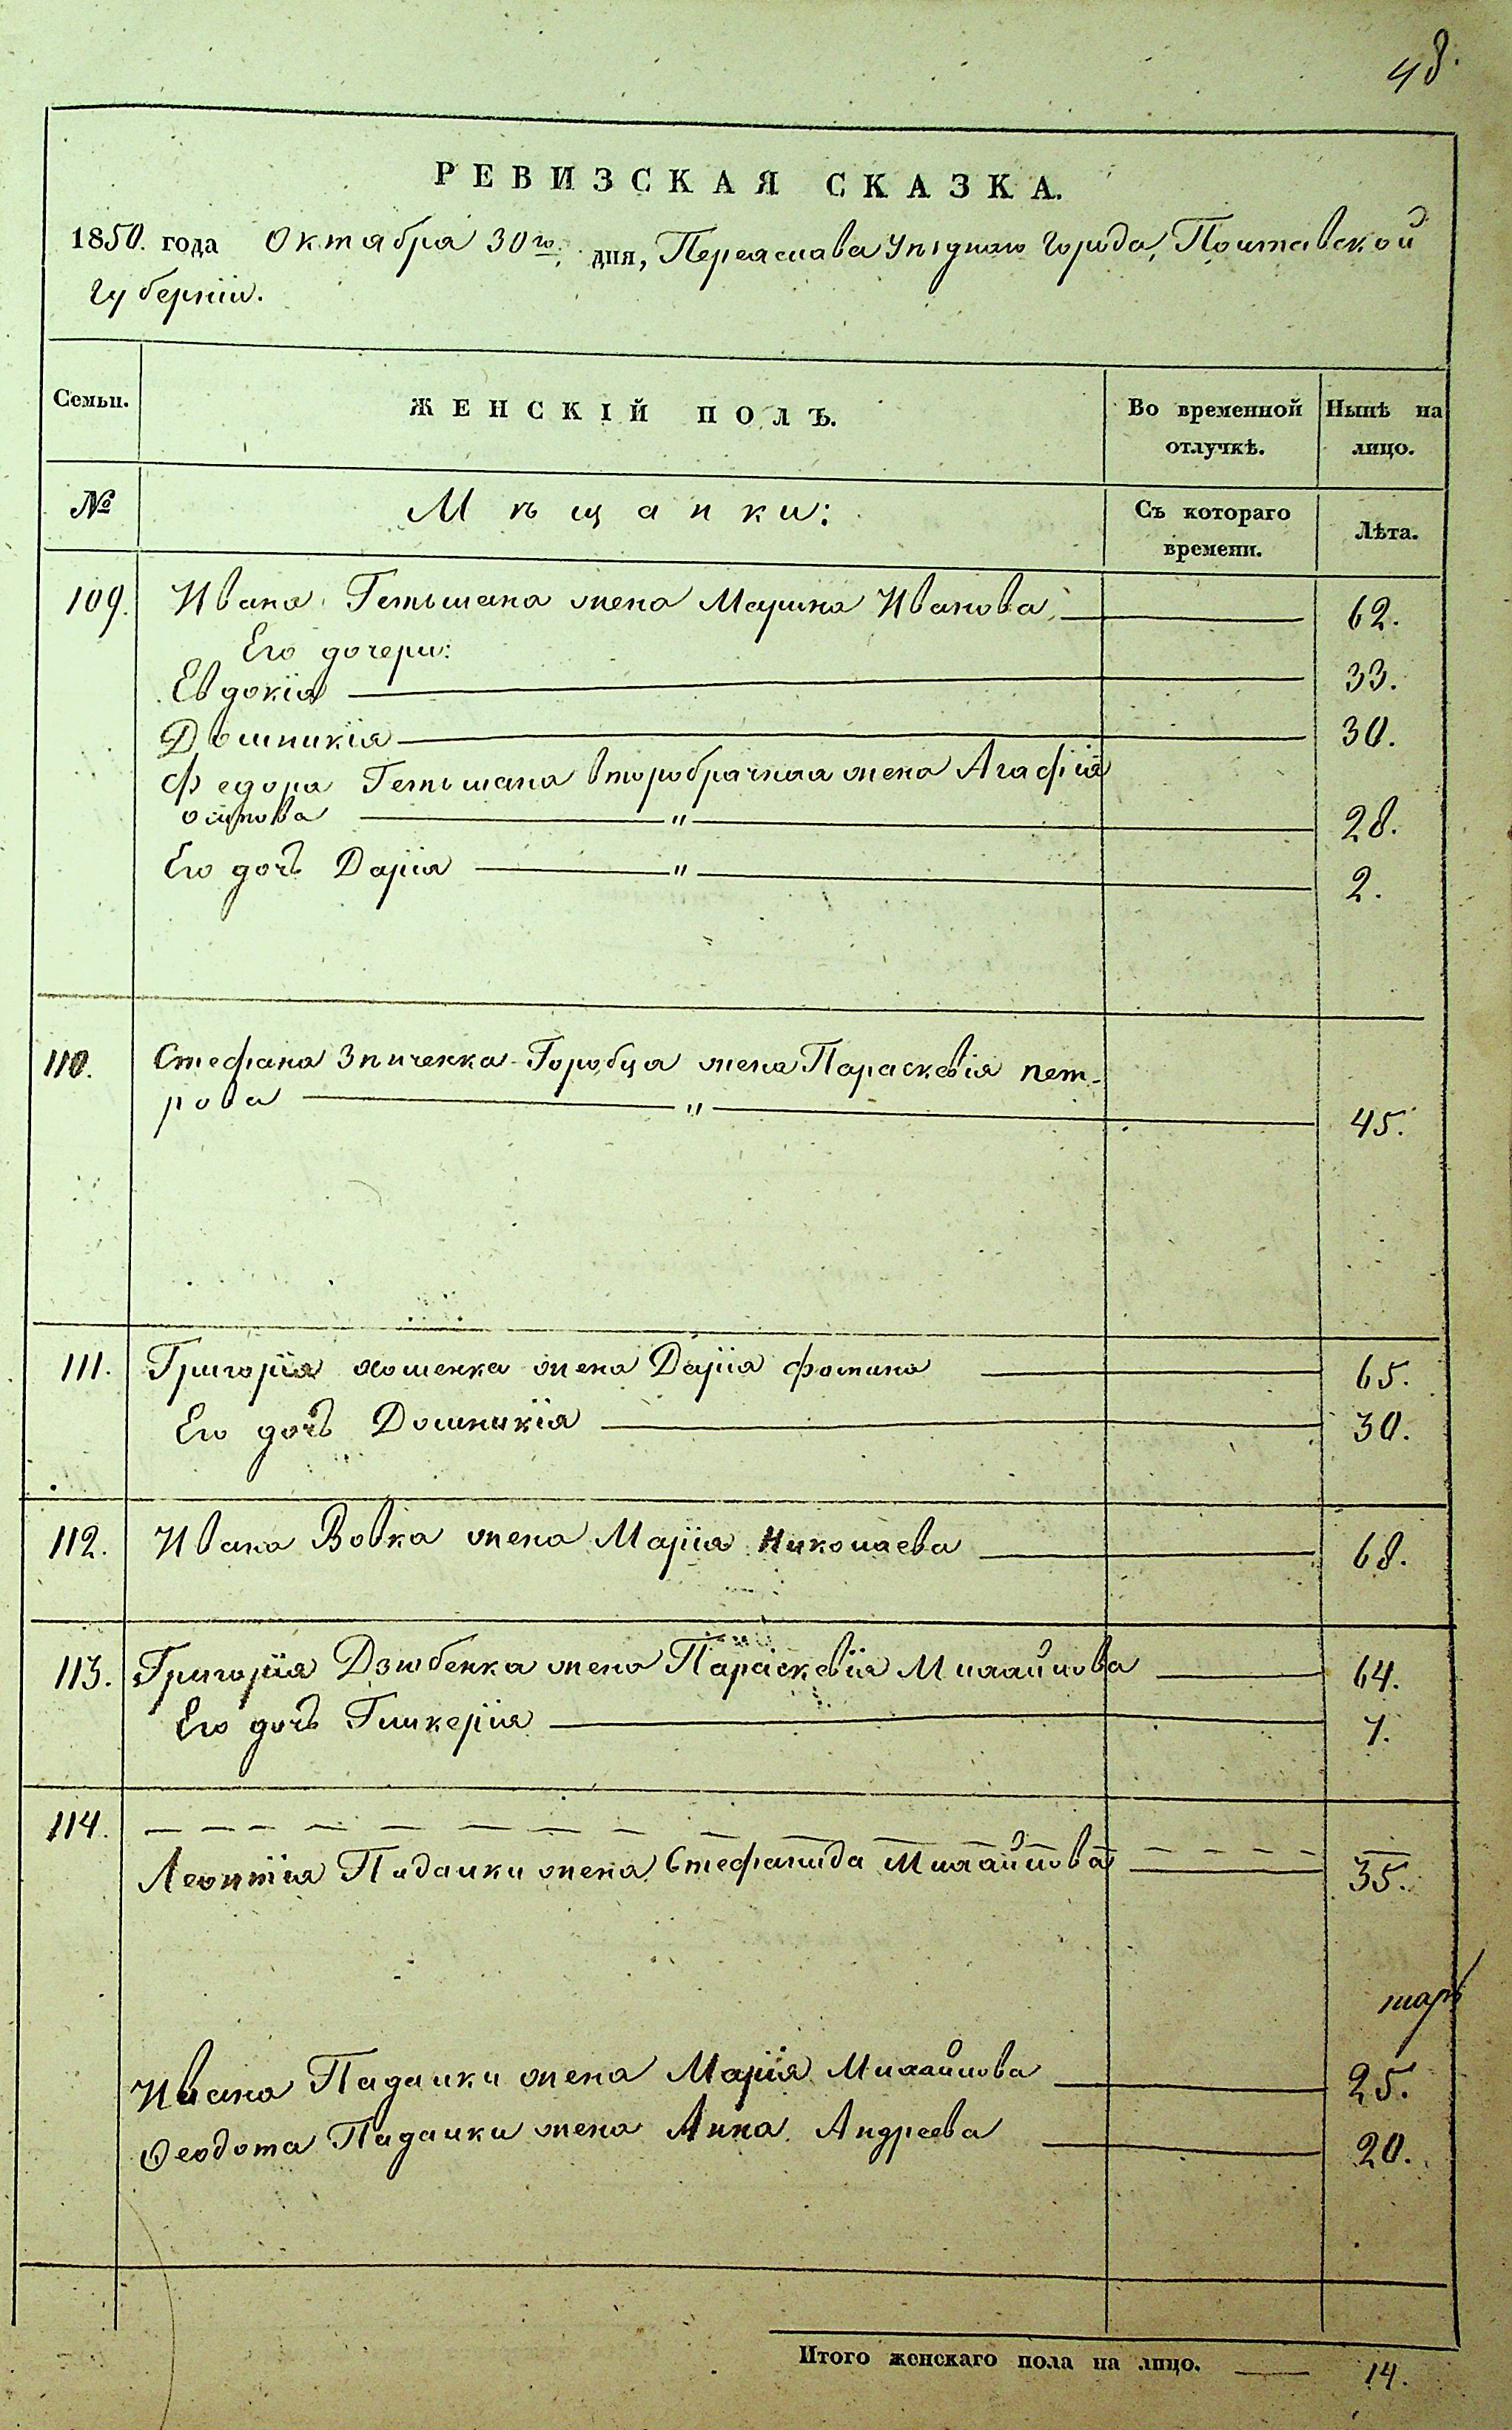 48.
РЕВИЗСКАЯ СКАЗКА.
1850. года Октября 30го. дня, Переяслава Уѣзднаго Города, Полтавской
Губернiи.
Семьи. ЖЕНСКIЙ ПОЛЪ. Во временной отлучкѣ. Нынѣ на лицо.
№ Мѣщанки: Съ котораго времени. Лѣта.
109. Ивана Гетьмана жена Марина Иванова 62.
Его дочери:
Евдокiя 33.
Домникiя 30.
Федора Гетьмана второбрачная жена Агафiя
Осипова " 28.
Его дочь Дарiя " 2.
110. Стефана Зѣнченка-Горобца жена Параскевiя Пет-
рова " 45.
111. Григорiя Хоменка жена Дарiя Фомина 65.
Его дочь Домникiя 30.
112. Ивана Вовка жена Марiя Николаева 68.
113. Григорiя Дзюбенка жена Параскевiя Михайлова 64.
Его дочь Гликерiя 7.
114.
Леонтiя Падалки жена Стефанида Михайлова 35.
Ивана Падалки жена Марiя Михайлова 25.
Феодота Падалки жена Анна Андреева 20.
Итого женскаго пола на лицо. 14.